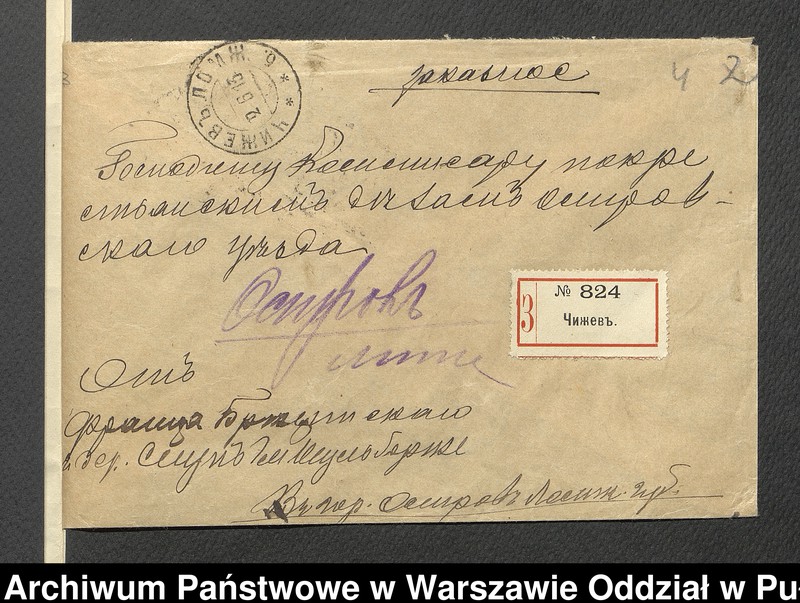 ЧИЖЕВЪ ЛОМЖ. Г.
2.6.15
заказное
4 2
Господину Коммиссару по кре
стьянскимъ дѣламъ Остров-
скаго уѣзда
Островъ
№ 824
З
Чижевъ.
Отъ
Франца
Въ гор. Островъ Ломж. губ.
Archiwum Państwowe w Warszawie Oddział w Pu